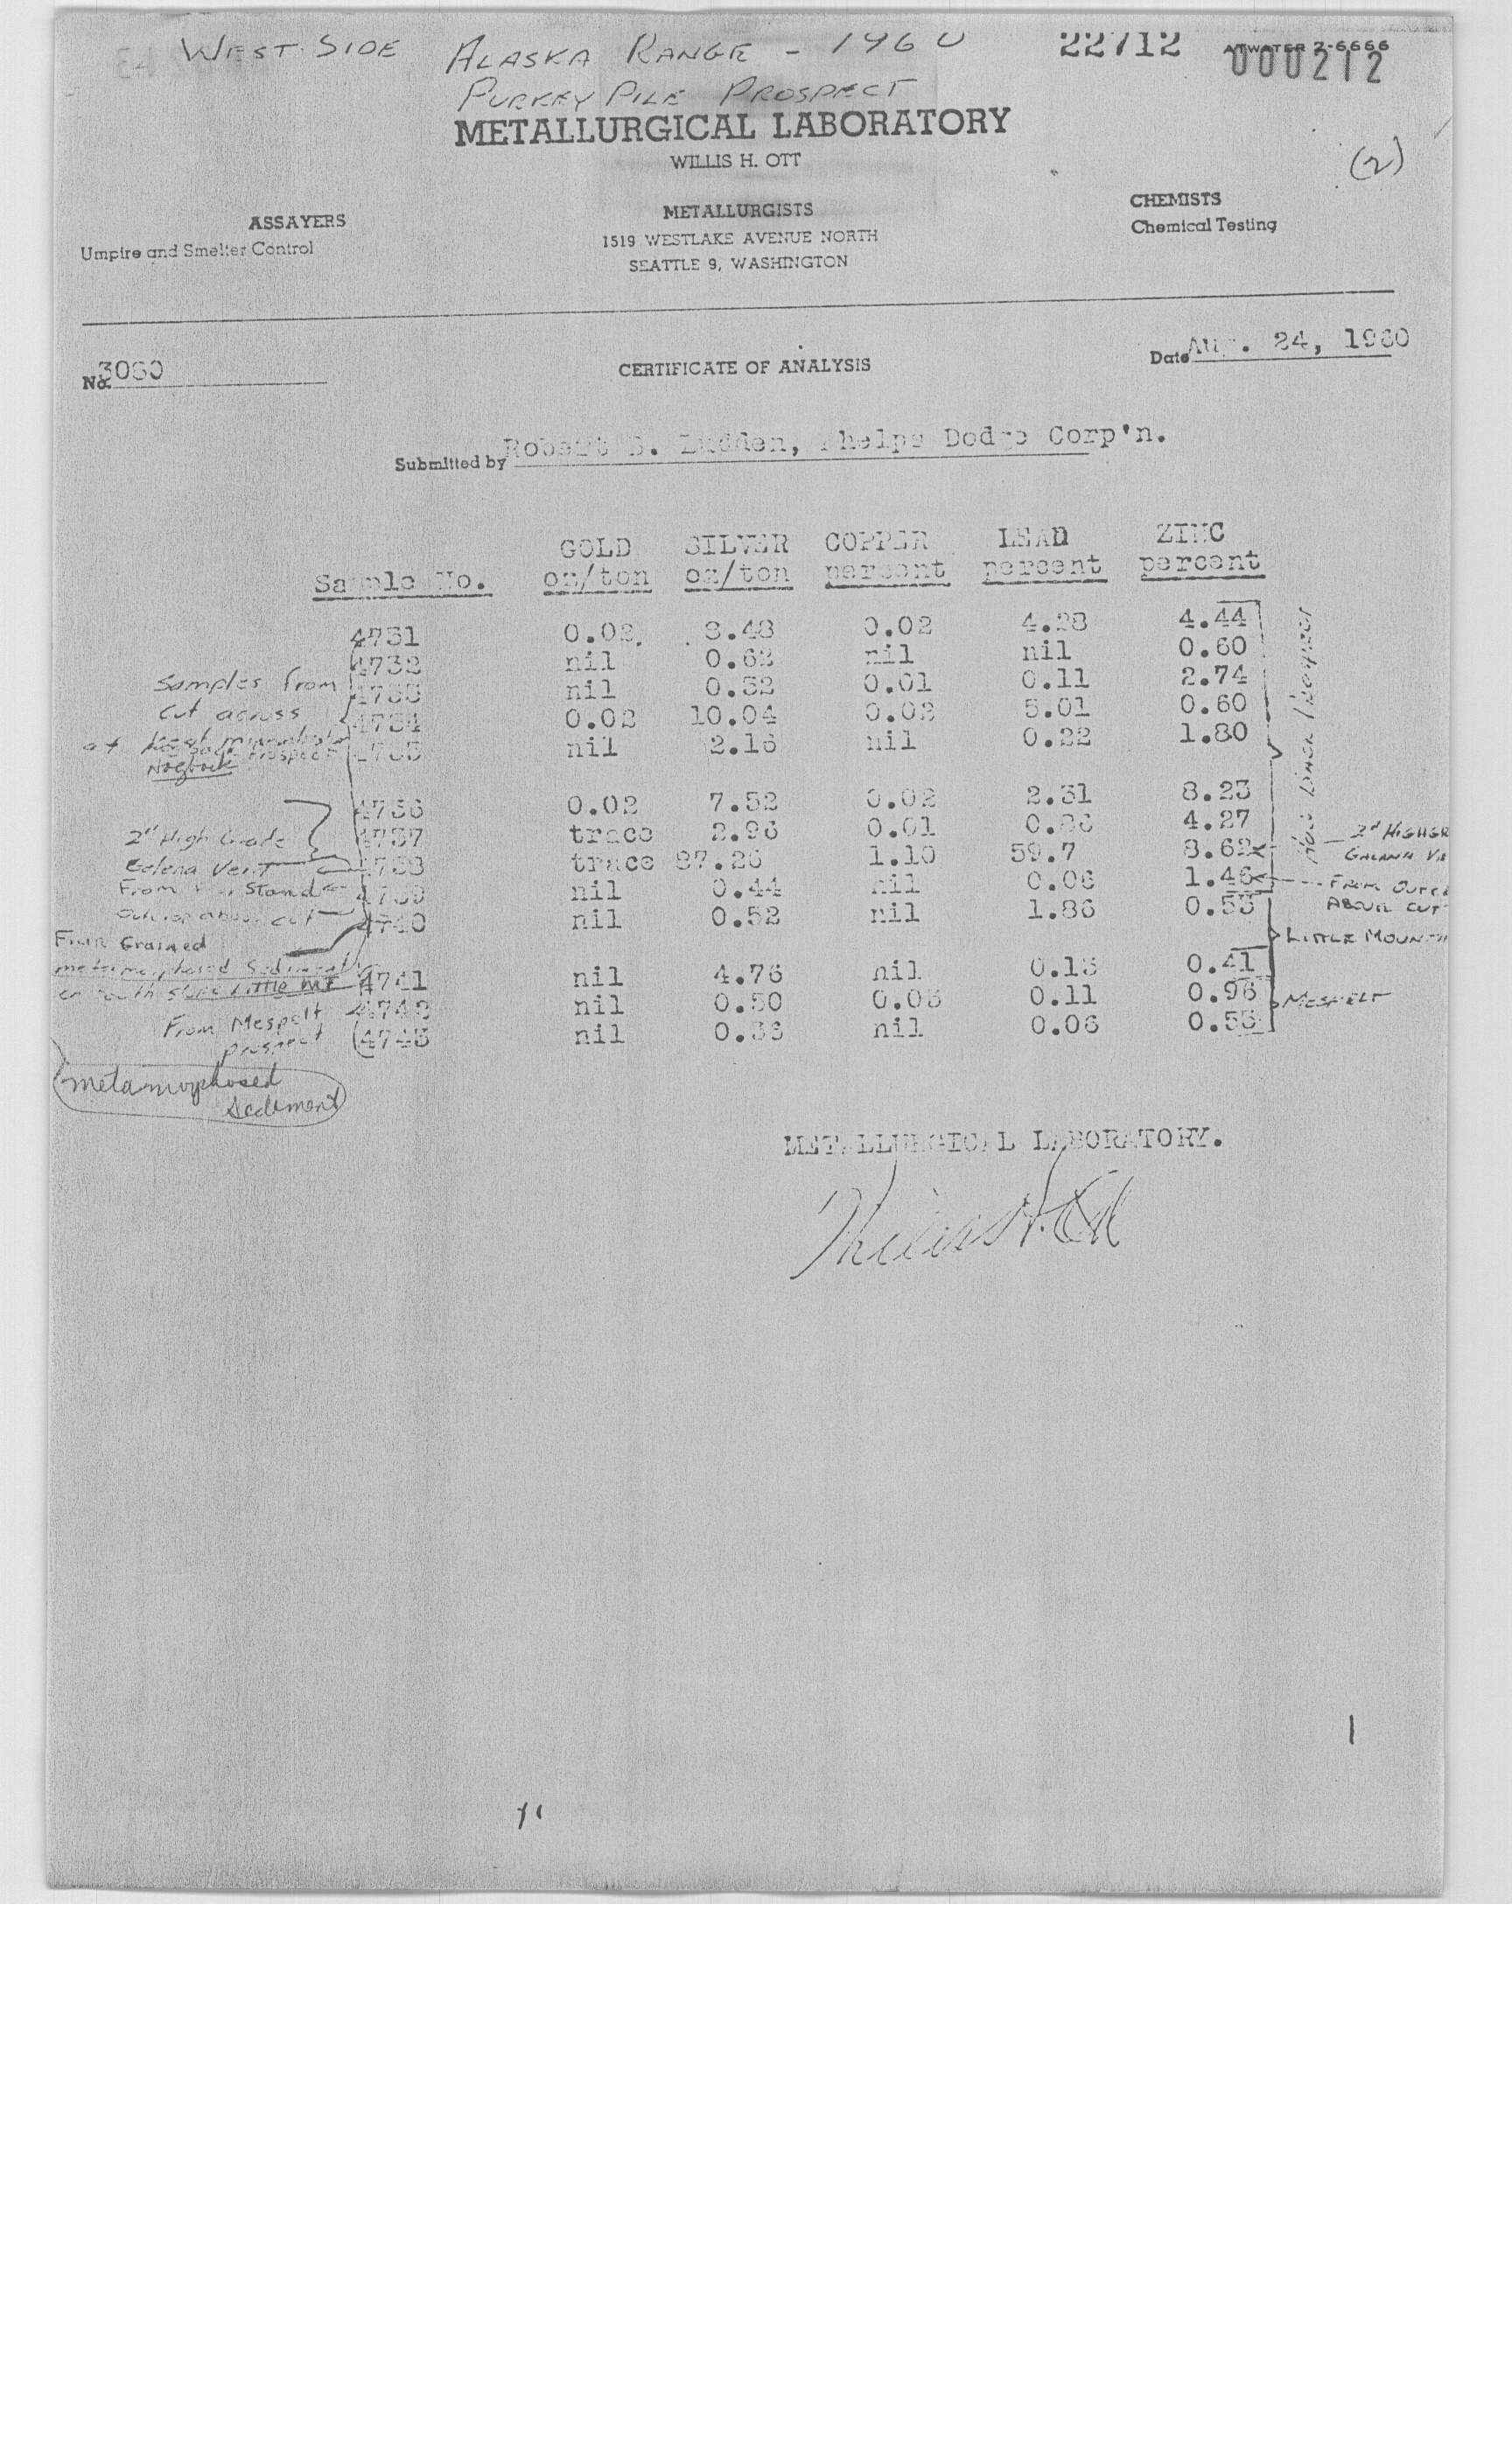 WEST SIDE ALASKA RANGE - 1960 22712 ATWATER 2-6666
000212
PURKEY PILE PROSPECT
METALLURGICAL LABORATORY
WILLIS H. OTT
(2)
ASSAYERS METALLURGISTS CHEMISTS
Umpire and Smelter Control 1519 WESTLAKE AVENUE NORTH Chemical Testing
SEATTLE 9, WASHINGTON
No. 3060 CERTIFICATE OF ANALYSIS Date Aug. 24, 1960
Submitted by Robert B. Ludden, Phelps Dodge Corp'n.
GOLD SILVER COPPER LEAD ZINC
Sample No. oz/ton oz/ton percent percent percent
4731 0.02 8.48 0.02 4.28 4.44
4732 nil 0.62 nil nil 0.60
Samples from 4733 nil 0.32 0.01 0.11 2.74
cut across 4734 0.02 10.04 0.02 5.01 0.60
at 4735 nil 2.16 nil 0.22 1.80
Hogback prospect
4736 0.02 7.52 0.02 2.31 8.23
2nd High Grade 4737 trace 2.96 0.01 0.86 4.27
Galena Vein 4738 trace 87.26 1.10 59.7 8.62
2nd HIGHGR
GALENA
From 4739 nil 0.44 nil 0.06 1.46
FROM
ABOVE CUT
outcrop above cut 4740 nil 0.52 nil 1.86 0.53
LITTLE MOUNT
Grained
metamorphosed Sediment
on south slope Little Mt 4741 nil 4.76 nil 0.13 0.41
4742 nil 0.50 0.03 0.11 0.96 MESPELT
From Mespelt prospect 4743 nil 0.36 nil 0.06 0.55
metamorphosed
Sediment
METALLURGICAL LABORATORY.
Willis H. Ott
1